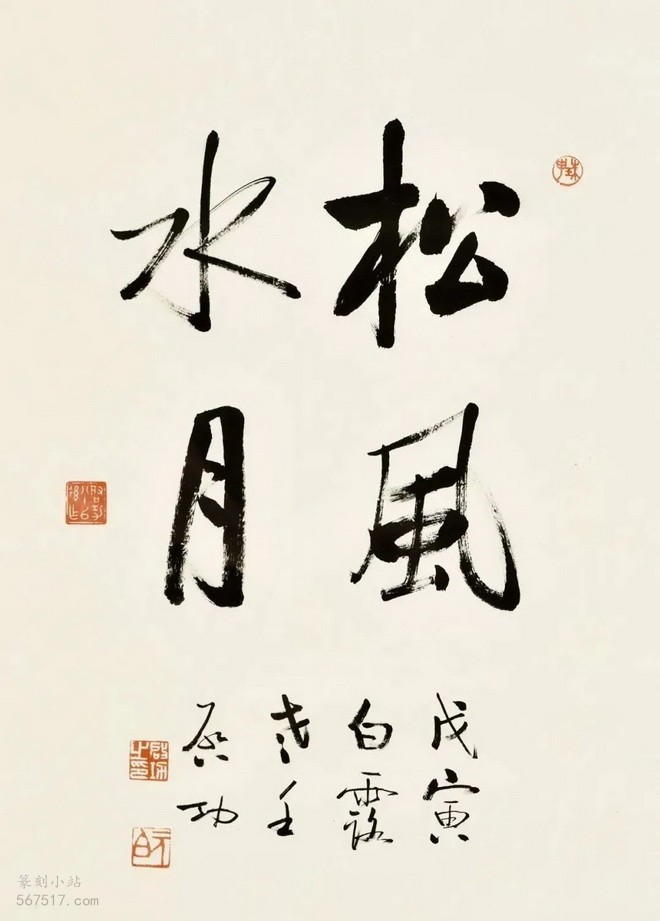 松風
水月
戊寅
白露
启功
篆刻小站
567517.com